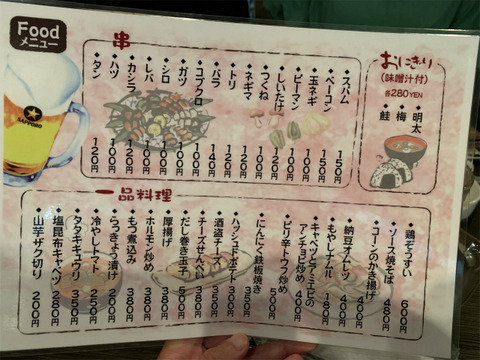 Food
メニュー
SAPPORO
串
◆スパム 150円
◆ベーコン 150円
◆玉ネギ 100円
◆ピーマン 100円
◆しいたけ 120円
◆つくね 100円
◆ネギマ 120円
◆トリ 120円
◆バラ 140円
◆コブクロ 100円
◆ガツ 100円
◆シロ 100円
◆レバ 100円
◆カシラ 120円
◆ハツ 120円
◆タン 120円
おにぎり
(味噌汁付)
各280YEN
明太
梅
鮭
一品料理
◆鶏ぞうすい 600円
◆ソース焼そば 480円
◆コーンのかき揚げ 480円
◆納豆オムレツ 400円
◆もやしナムル 180円
◆キャベツとアミエビの
アンチョビ炒め 400円
◆ピリ辛トウフ炒め 500円
◆にんにく鉄板焼き
◆ハッシュドポテト
◆酒盗チーズ
◆チーズせんべい
◆だし巻き玉子 500円
◆厚揚げ 380円
◆ホルモン炒め 380円
◆もつ煮込み 380円
◆らっきょう漬け 200円
◆冷やしトマト 250円
◆タタキキュウリ 250円
◆塩昆布キャベツ 350円
◆山芋ザク切り 200円